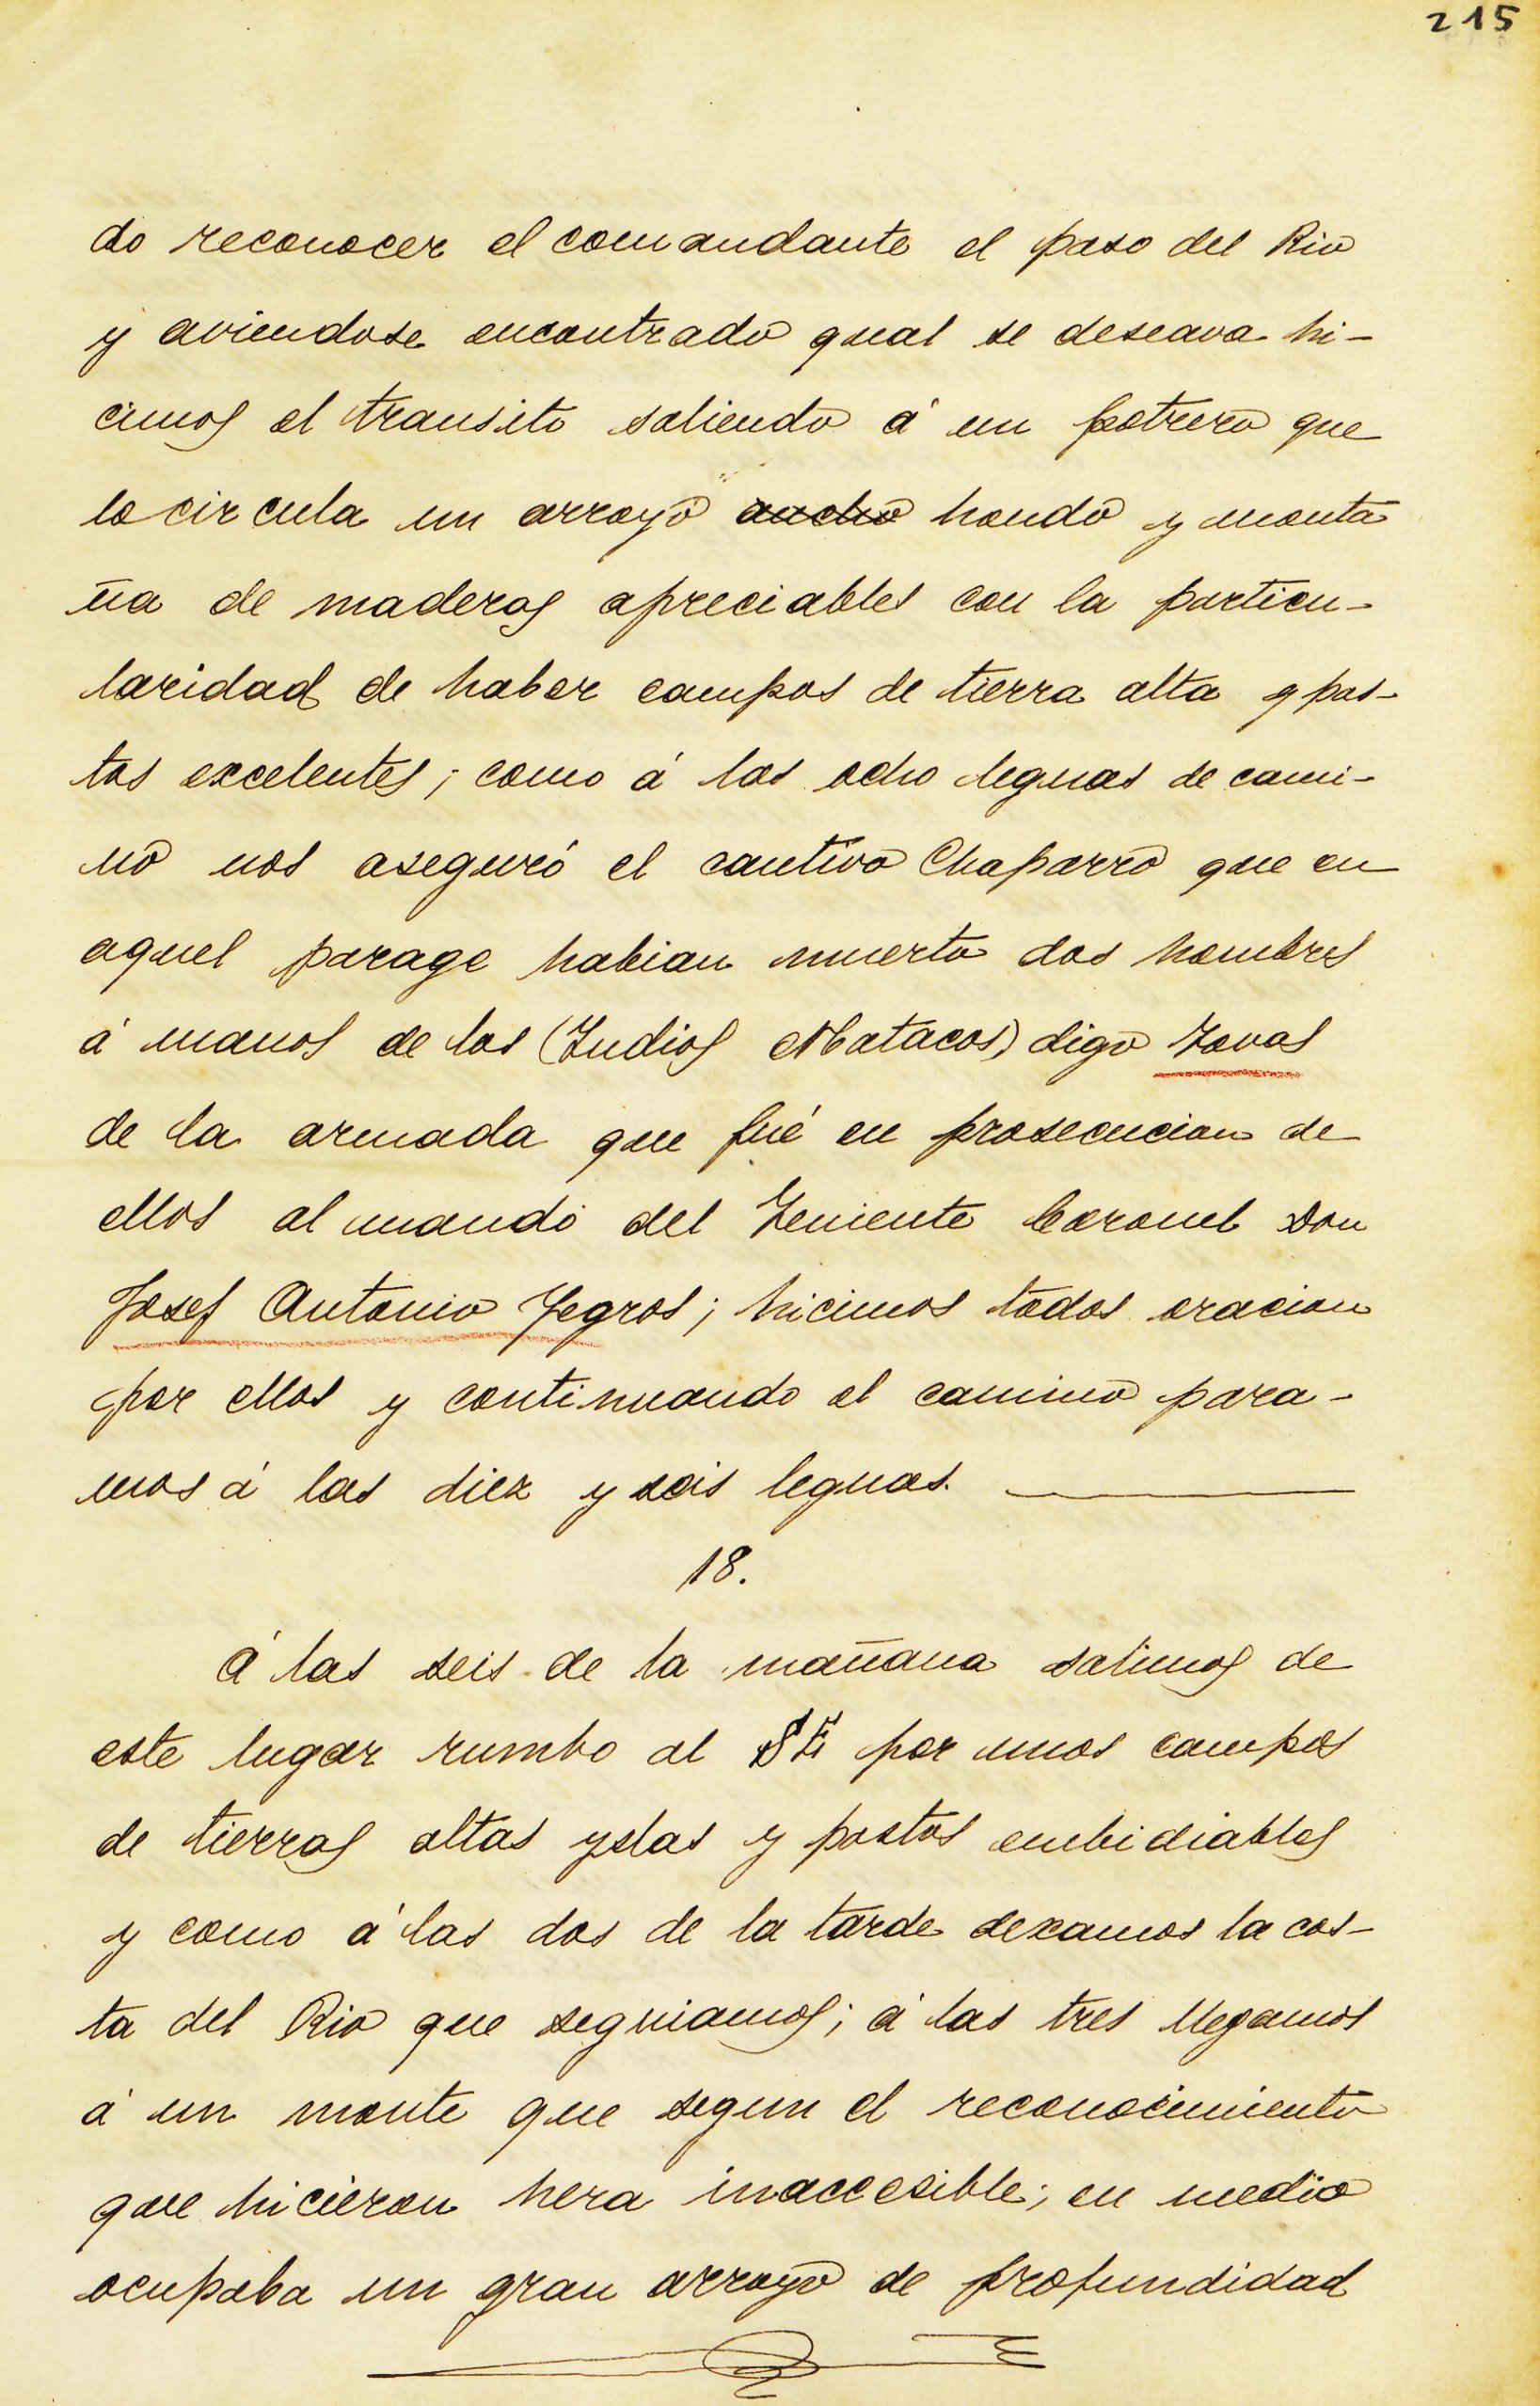 215
do reconocer el comandante el paso del Rio
y aviendose encontrado qual se deseava hi-
cimos el transito saliendo á un potrero que
lo circula un arroyo ancho hondo y monta
ña de maderas apreciables con la particu-
laridad de haber campos de tierra alta y pas-
tos excelentes; como á las ocho leguas de cami-
no nos aseguró el cautivo Chaparro que en
aquel parage habian muerto dos hombres
á manos de los (Indios Matacos) digo Tovas
de la armada que fué en prosecucion de
ellos al mando del Teniente Coronel Don
Josef Antonio Yegros; hicimos todos oracion
por ellos y continuando el camino para-
mos á las diez y seis leguas.
18.
Á las seis de la mañana salimos de
este lugar rumbo al SE por unos campos
de tierras altas yslas y pastos embidiables
y como á las dos de la tarde dexamos la cos-
ta del Rio que seguiamos; á las tres llegamos
á un monte que segun el reconocimiento
que hicieron hera inaccesible; en medio
ocupaba un gran arroyo de profundidad